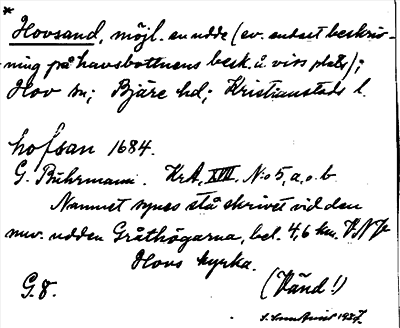 *
Hovsand, möjl. en udde (ev. endast beskriv-
ning på havsbottnens besk. å viss plats);
Hov sn; Bjäre hd; Kristianstads l.
hofsan 1684.
G. Buhrmann. KrA, XVIII. N:o 5, a. o. b
Namnet synes stå skrivet vid den
nuv. udden Gråthögarna, bel. 4,6 km. V.N.V.
Hovs kyrka.
G. 8. (Vänd!)
1927.